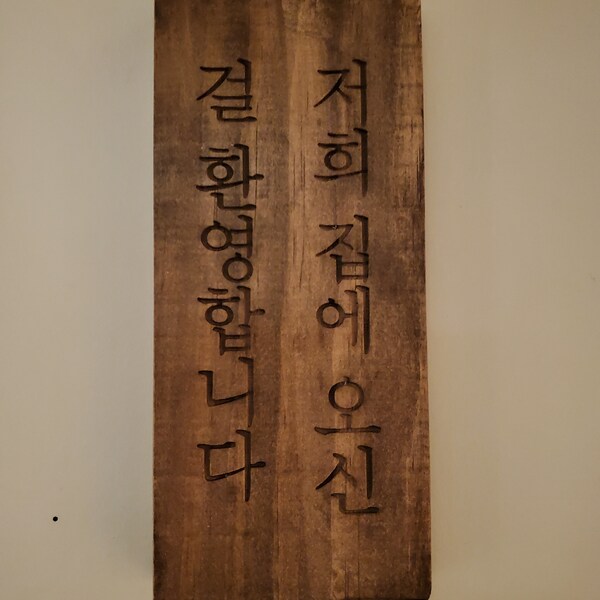 저희 집에 오신
걸 환영합니다